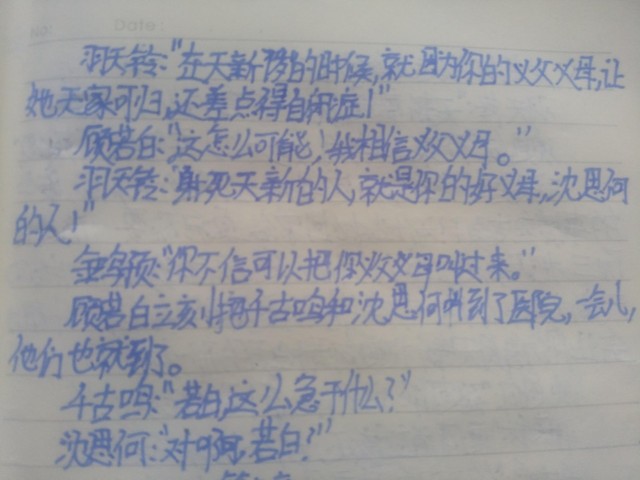 Date
羽天铃:"在天新7岁的时候,就因为你的义父义母,让
她无家可归,还差点得自闭症!"
顾若白:"这怎么可能!我相信义父义母。"
羽天铃:"射死天新的人,就是你的好义母,沈思何
的人!"
"你不信可以把你义父义母叫过来。"
顾若白立刻把千古鸣和沈思何叫到了医院,一会儿,
他们也就到了。
千古鸣:"若白,这么急干什么?"
沈思何:"对啊,若白?"